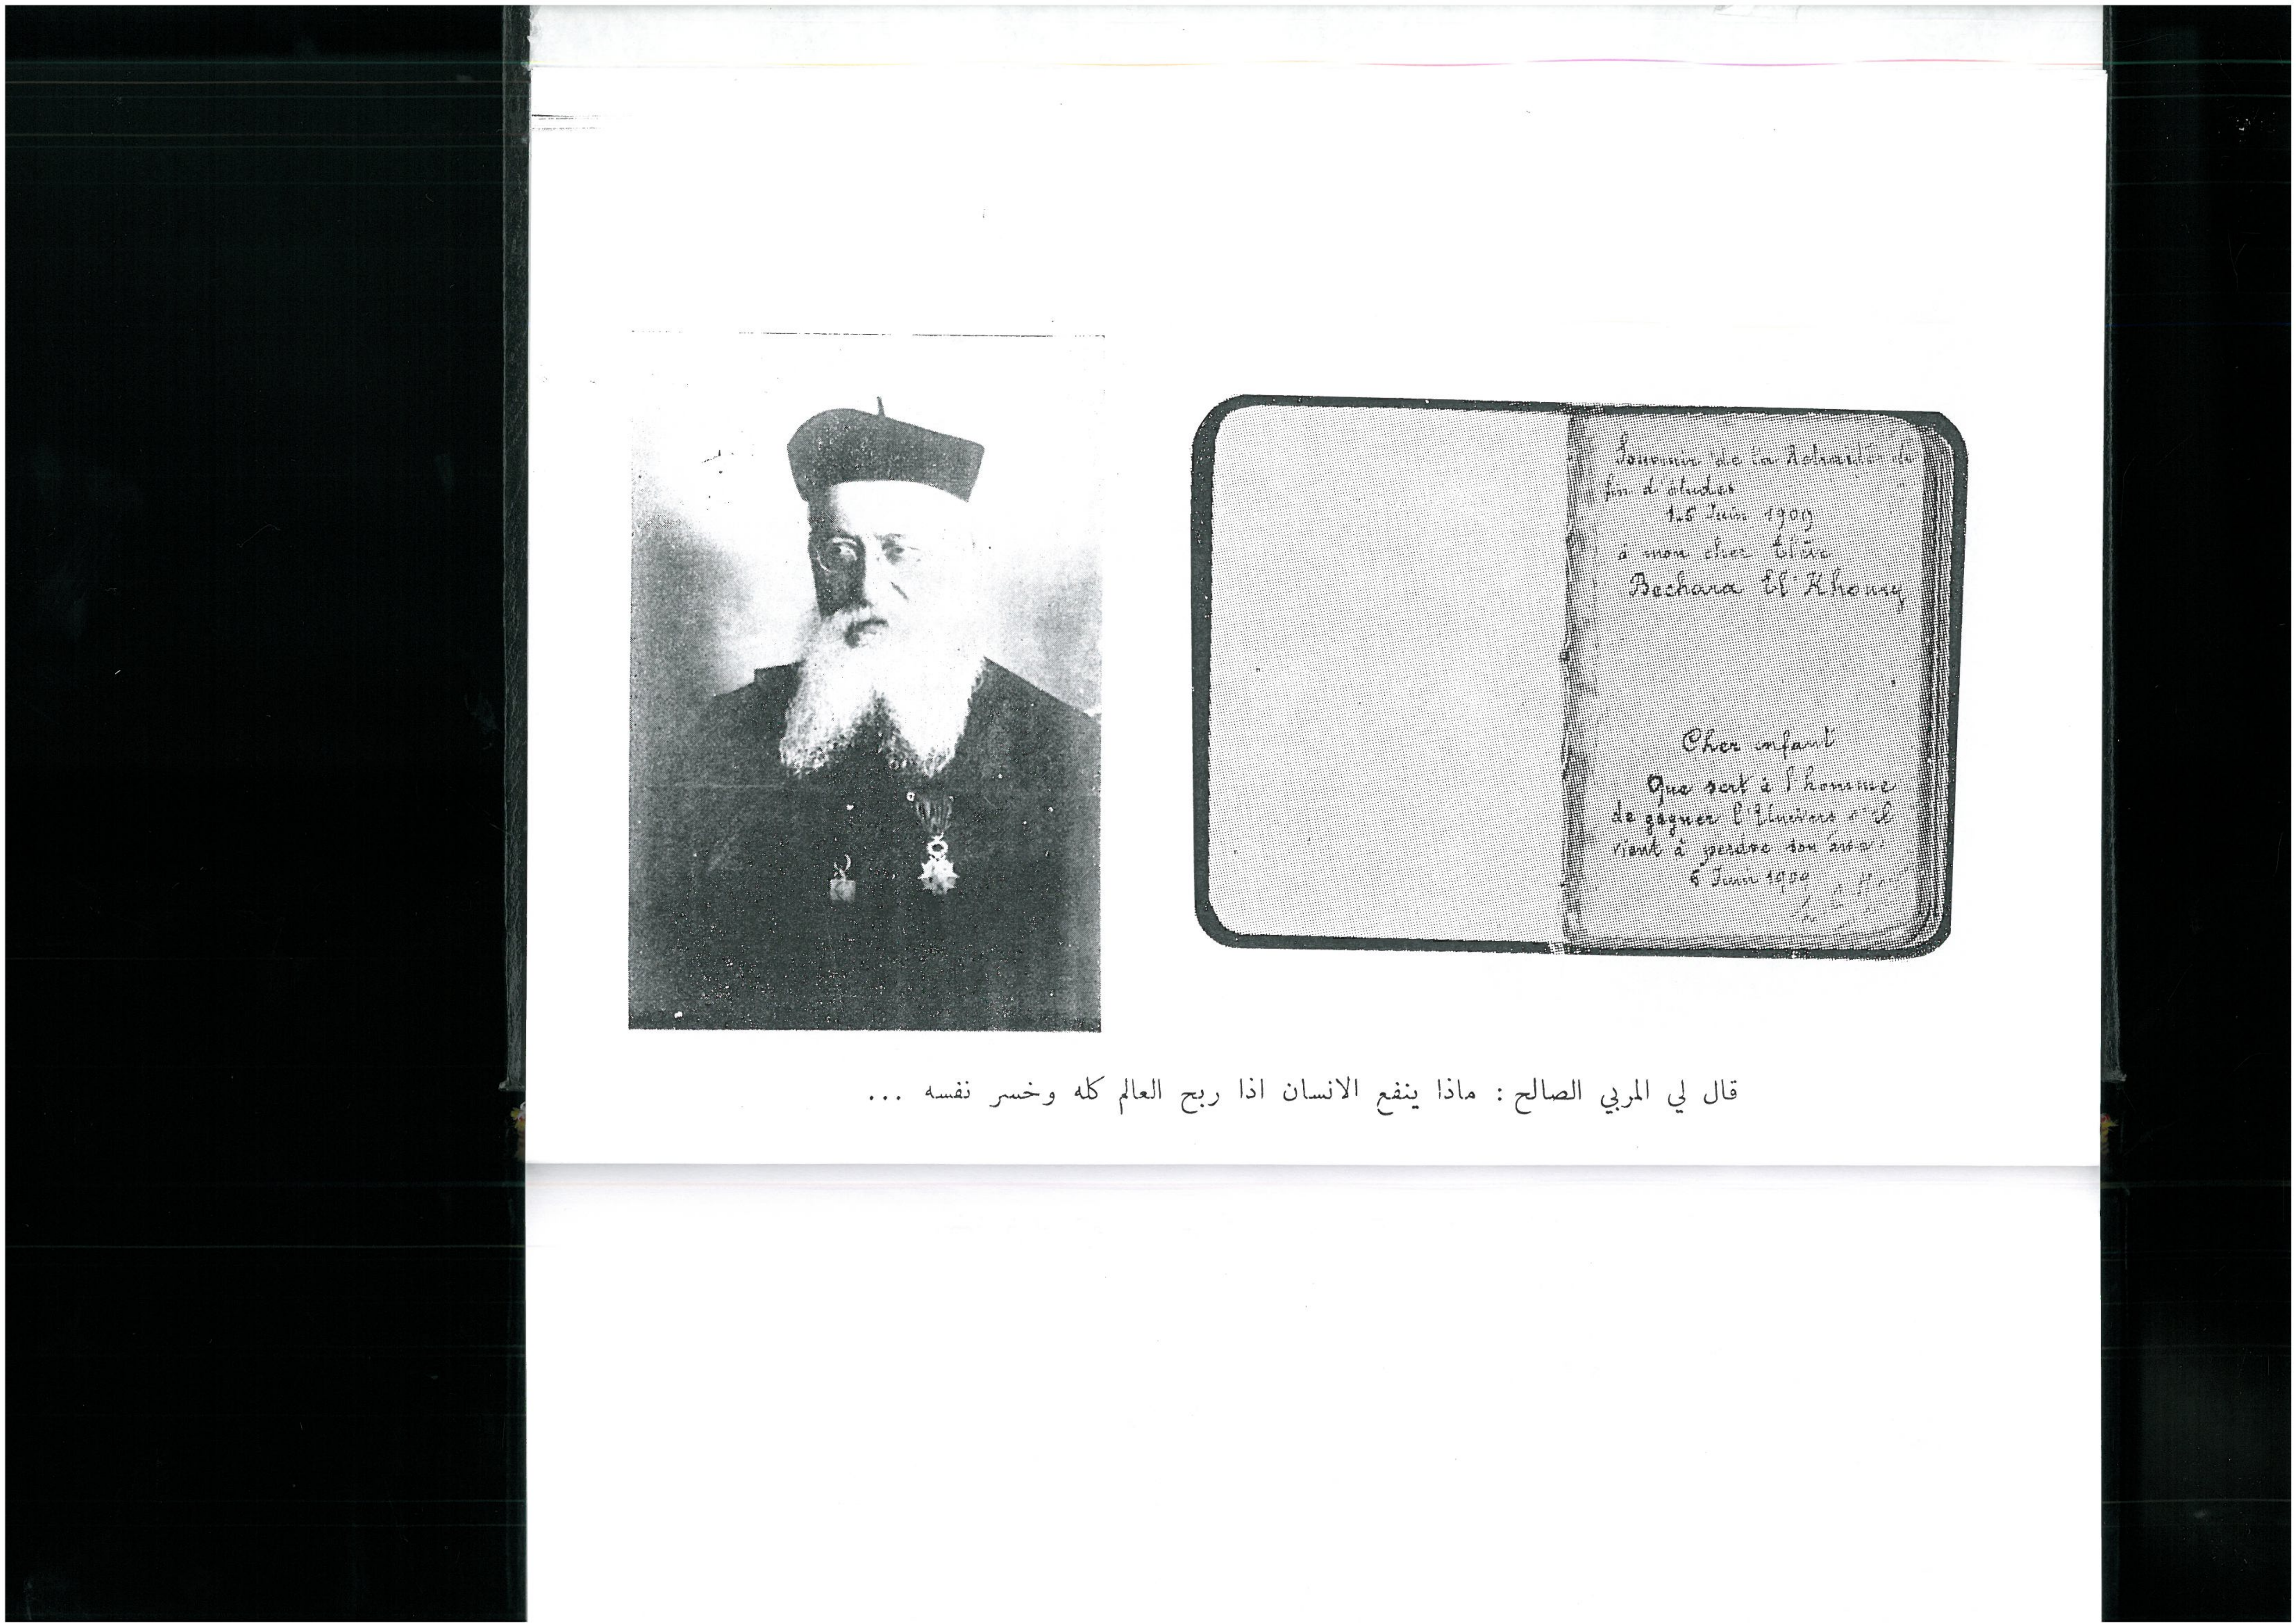 Souvenir de la Retraite de
fin d'études
15 Juin 1909
à mon cher Élève
Bechara El Khoury
Cher enfant
Que sert à l'homme
de gagner l'Univers s'il
vient à perdre son âme
Juin 1909
قال لي المربي الصالح : ماذا ينفع الانسان اذا ربح العالم كله وخسر نفسه ...